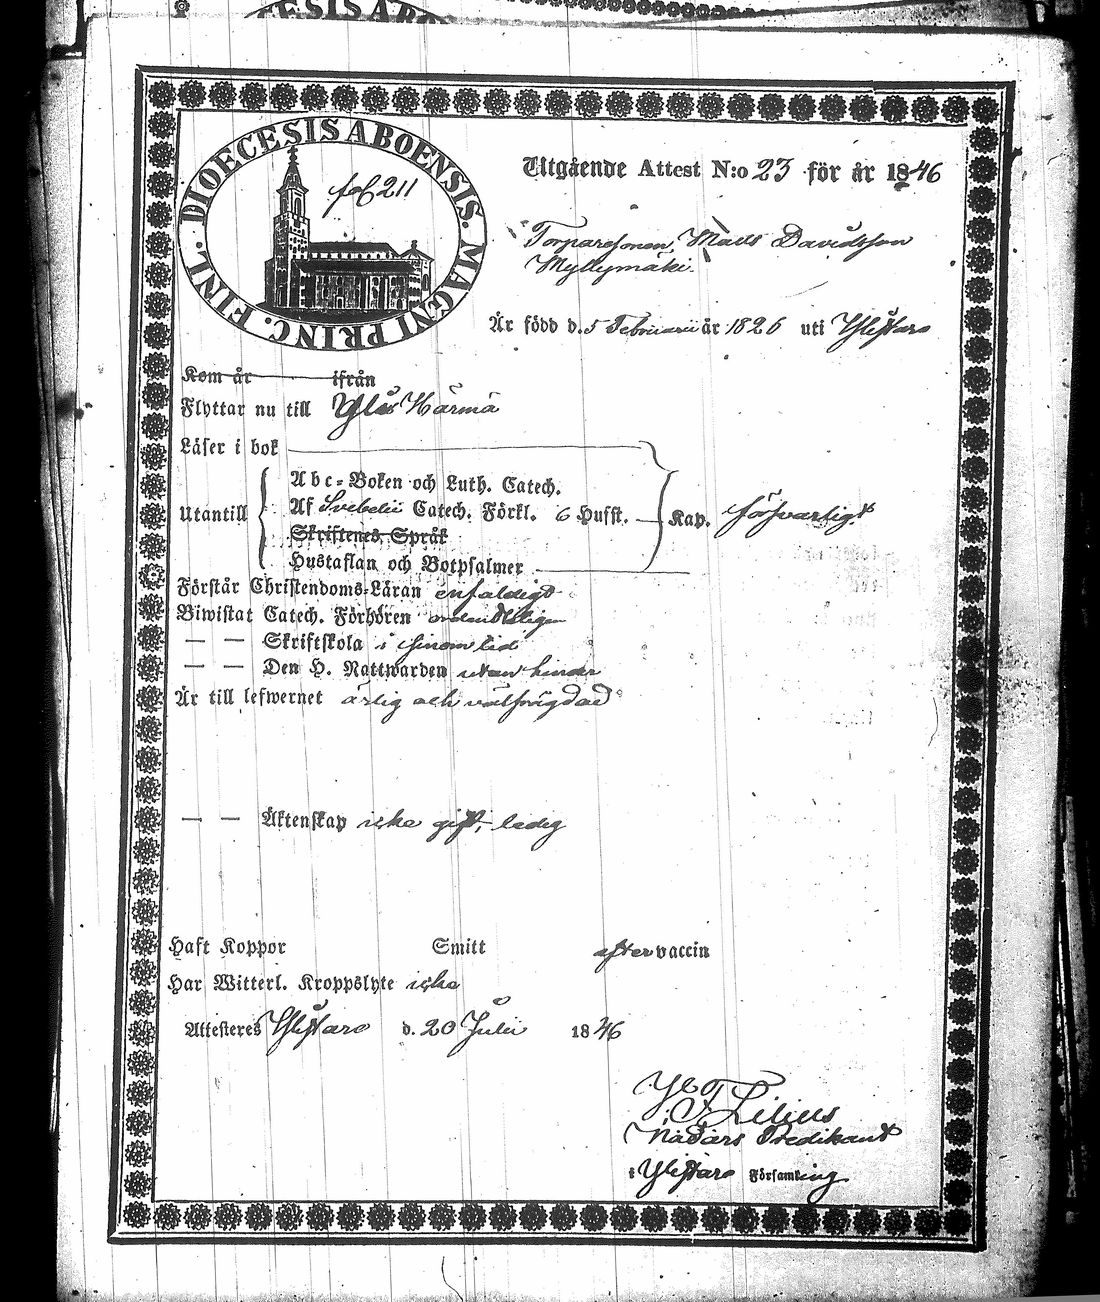 DIOECESIS ABOENSIS. MAGNI PRINC. FINL.
fol 211
Utgående Attest N:o 23 för år 1846
Torparesonen, Matts Davidsson
Myllymäki
Är född d. 5 Februarii år 1826 uti Ylistaro
Kom år ifrån
Flyttar nu till Ylis Härmä
Läser i bok
Utantill
Abc-Boken och Luth. Catech.
Af Svebelii Catech. Förkl. 6 Hufst. Kap. försvarligt
Skriftenes Språk
Hustaflan och Botpsalmer
Förstår Christendoms-Läran enfaldigt
Biwistat Catech. Förhören ordentligen
— — Skriftskola i sinom tid
— — Den H. Nattwarden utan hinder
Är till lefwernet ärlig och välfrägdad
— — Äktenskap icke gift, ledig
Haft Koppor Smitt efter vaccin
Har Witterl. Kroppslyte icke
Attesteres Ylistaro d. 20 Julii 1846
F. Lilius
Nådårs Predikant
i Ylistaro Församling